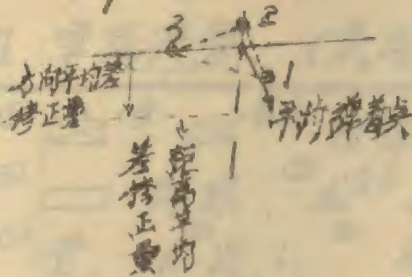 3
2
1
方向平均差
修正量
平均弹着点
距离平均
差修正量
1